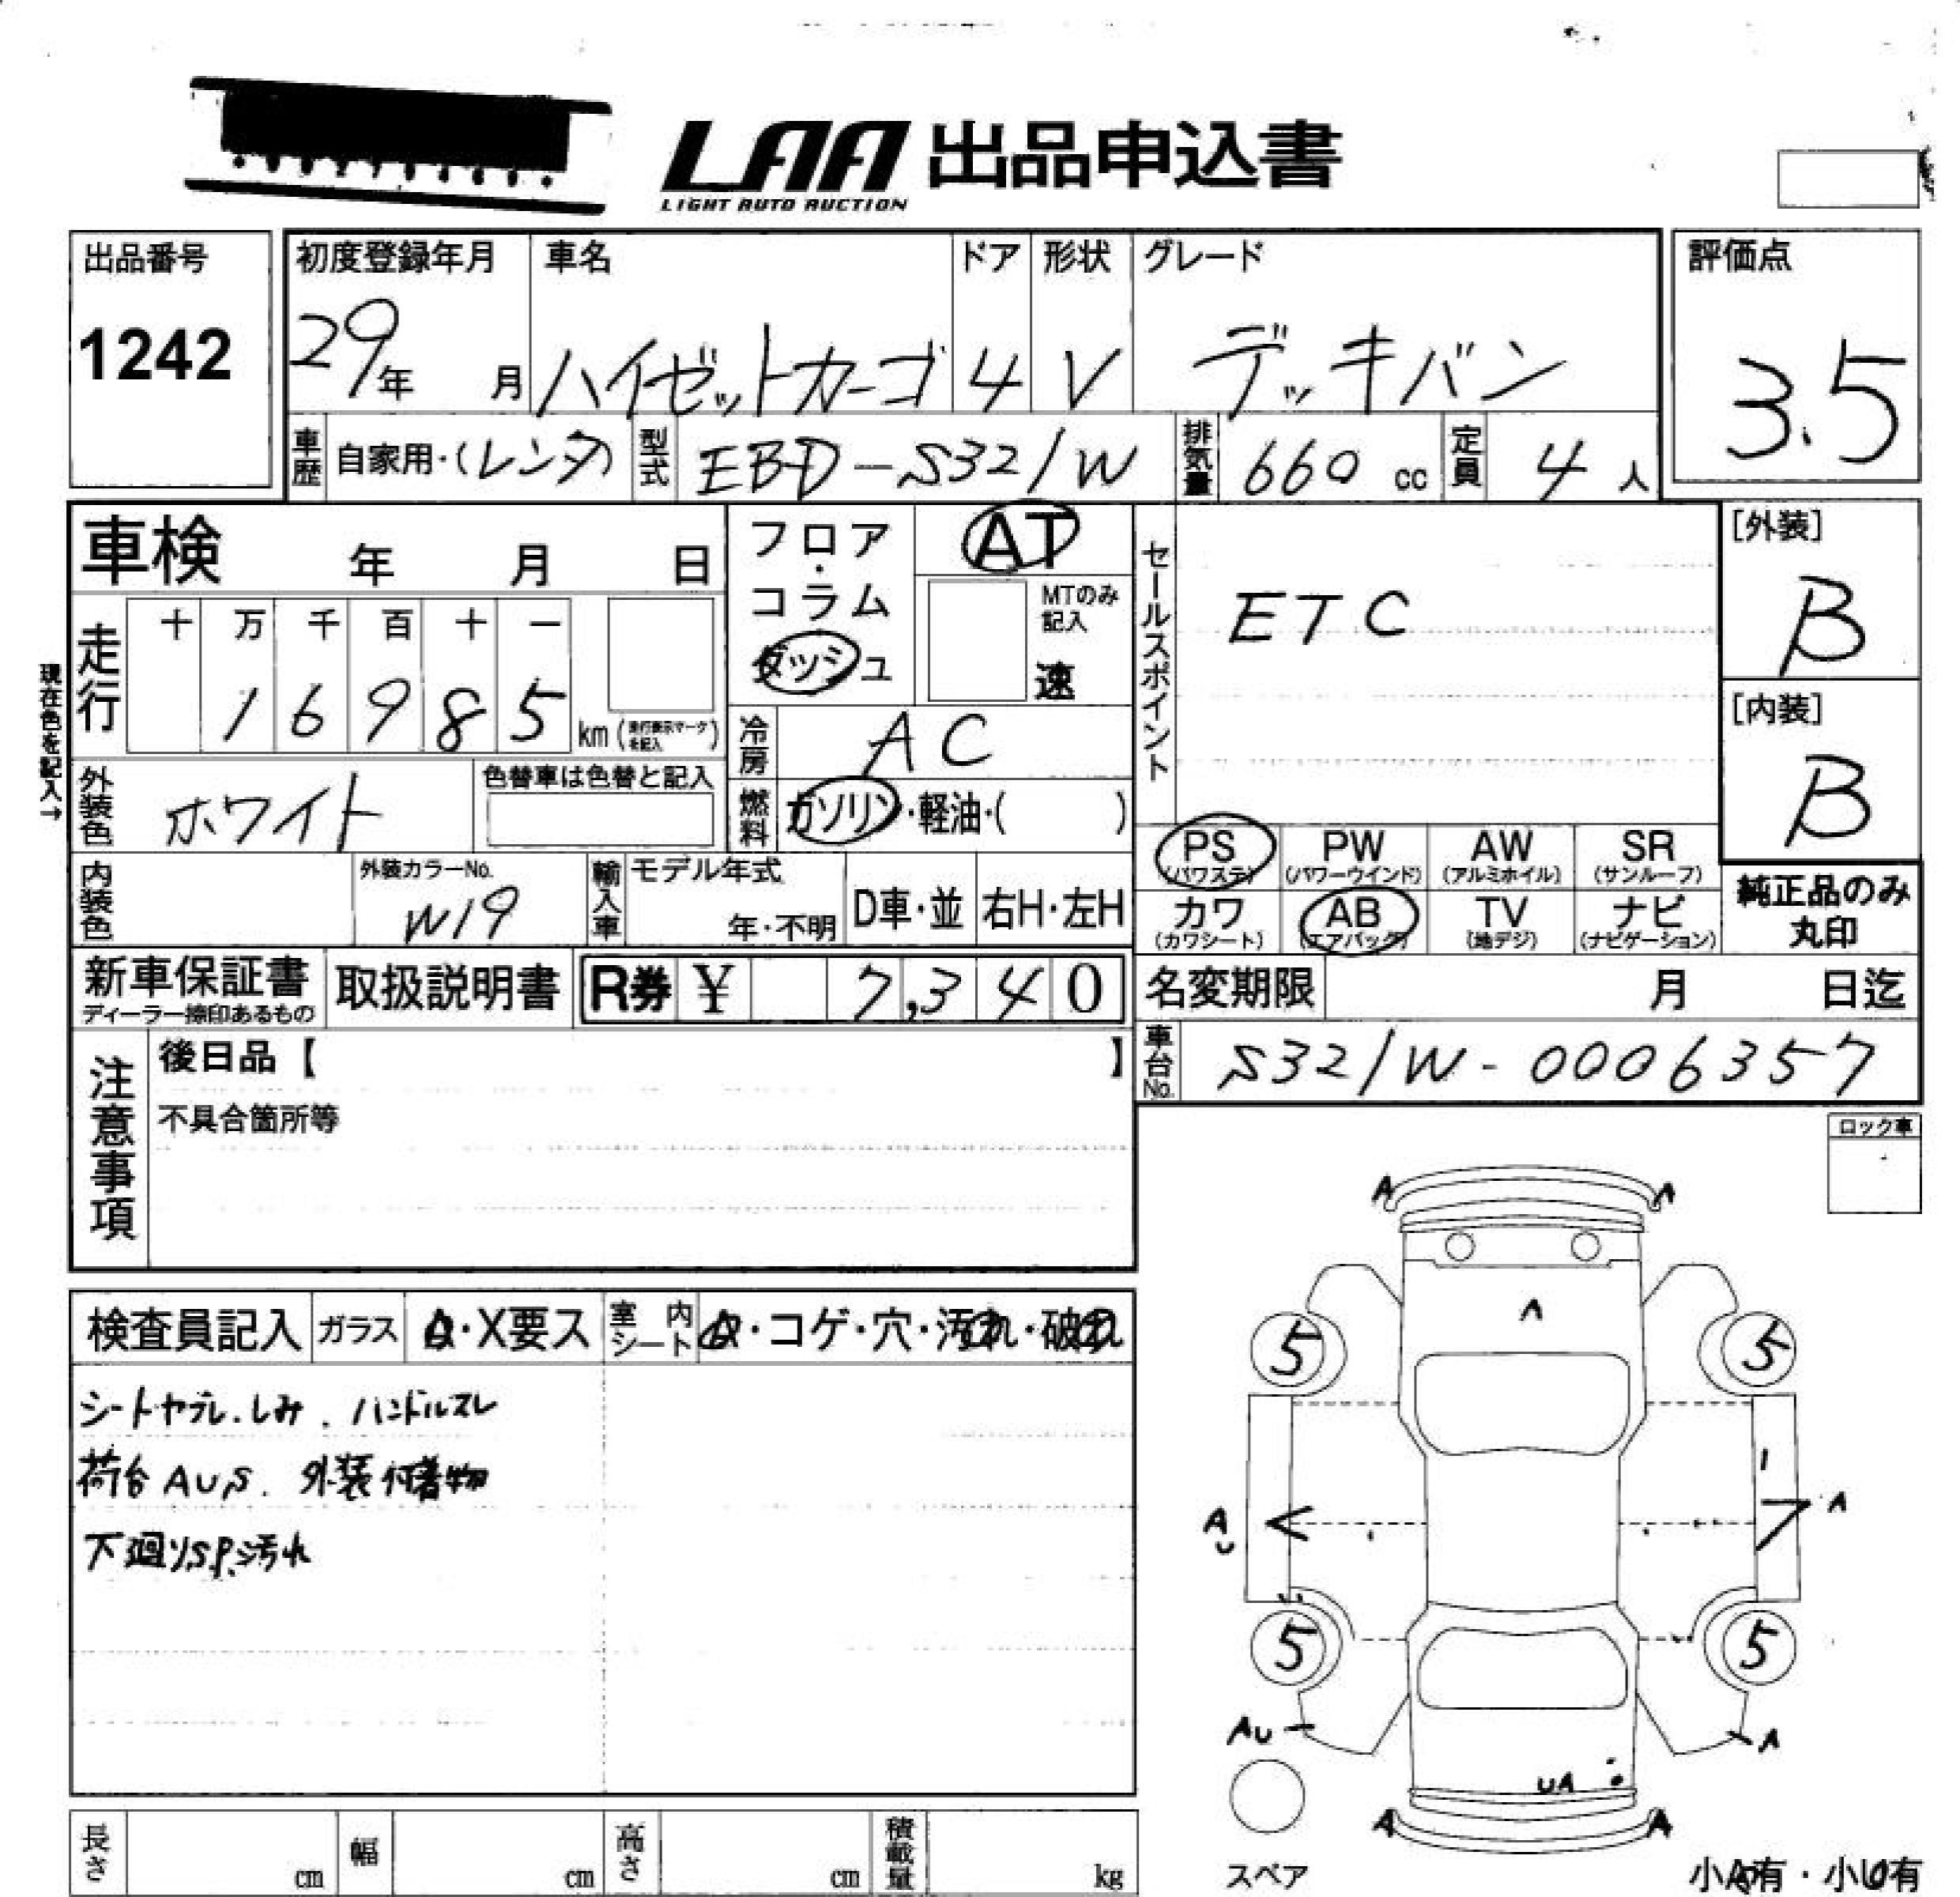 LAA 出品申込書
LIGHT AUTO AUCTION
出品番号
1242
初度登録年月
29年 月
車名
ハイゼットカーゴ
ドア
4
形状
V
グレード
デッキバン
評価点
3.5
車歴 自家用・(レンタ)
型式 EBD-S321W
排気量 660 cc
定員 4 人
車検 年 月 日
走行
十 万 千 百 十 一
1 6 9 8 5
km(走行表示マークを記入)
現在色を記入→
フロア・コラム
ダッシュ
AT
MTのみ記入
速
冷房 AC
燃料 ガソリン・軽油・( )
セールスポイント
ETC
[外装]
B
[内装]
B
外装色 ホワイト
色替車は色替と記入
内装色
外装カラーNo.
W19
輸入車
モデル年式
年・不明
D車・並
右H・左H
PS
(パワステ)
PW
(パワーウインド)
AW
(アルミホイル)
SR
(サンルーフ)
カワ
(カワシート)
AB
(エアバッグ)
TV
(地デジ)
ナビ
(ナビゲーション)
純正品のみ
丸印
新車保証書
ディーラー捺印あるもの
取扱説明書
R券 ¥ 7,340
名変期限 月 日迄
車台No. S321W-0006357
注意事項
後日品【 】
不具合箇所等
ロック車
検査員記入
ガラス
・X要ス
室内シート
・コゲ・穴・汚れ・破れ
シートヤブレ.しみ.ハンドルスレ
荷台AUS. 外装付着物
下廻りS.P.汚れ
A A
A
5 5
A U
A
5 5
AU
A
UA
A A
スペア
小A有・小U有
長さ cm
幅 cm
高さ cm
積載量 kg